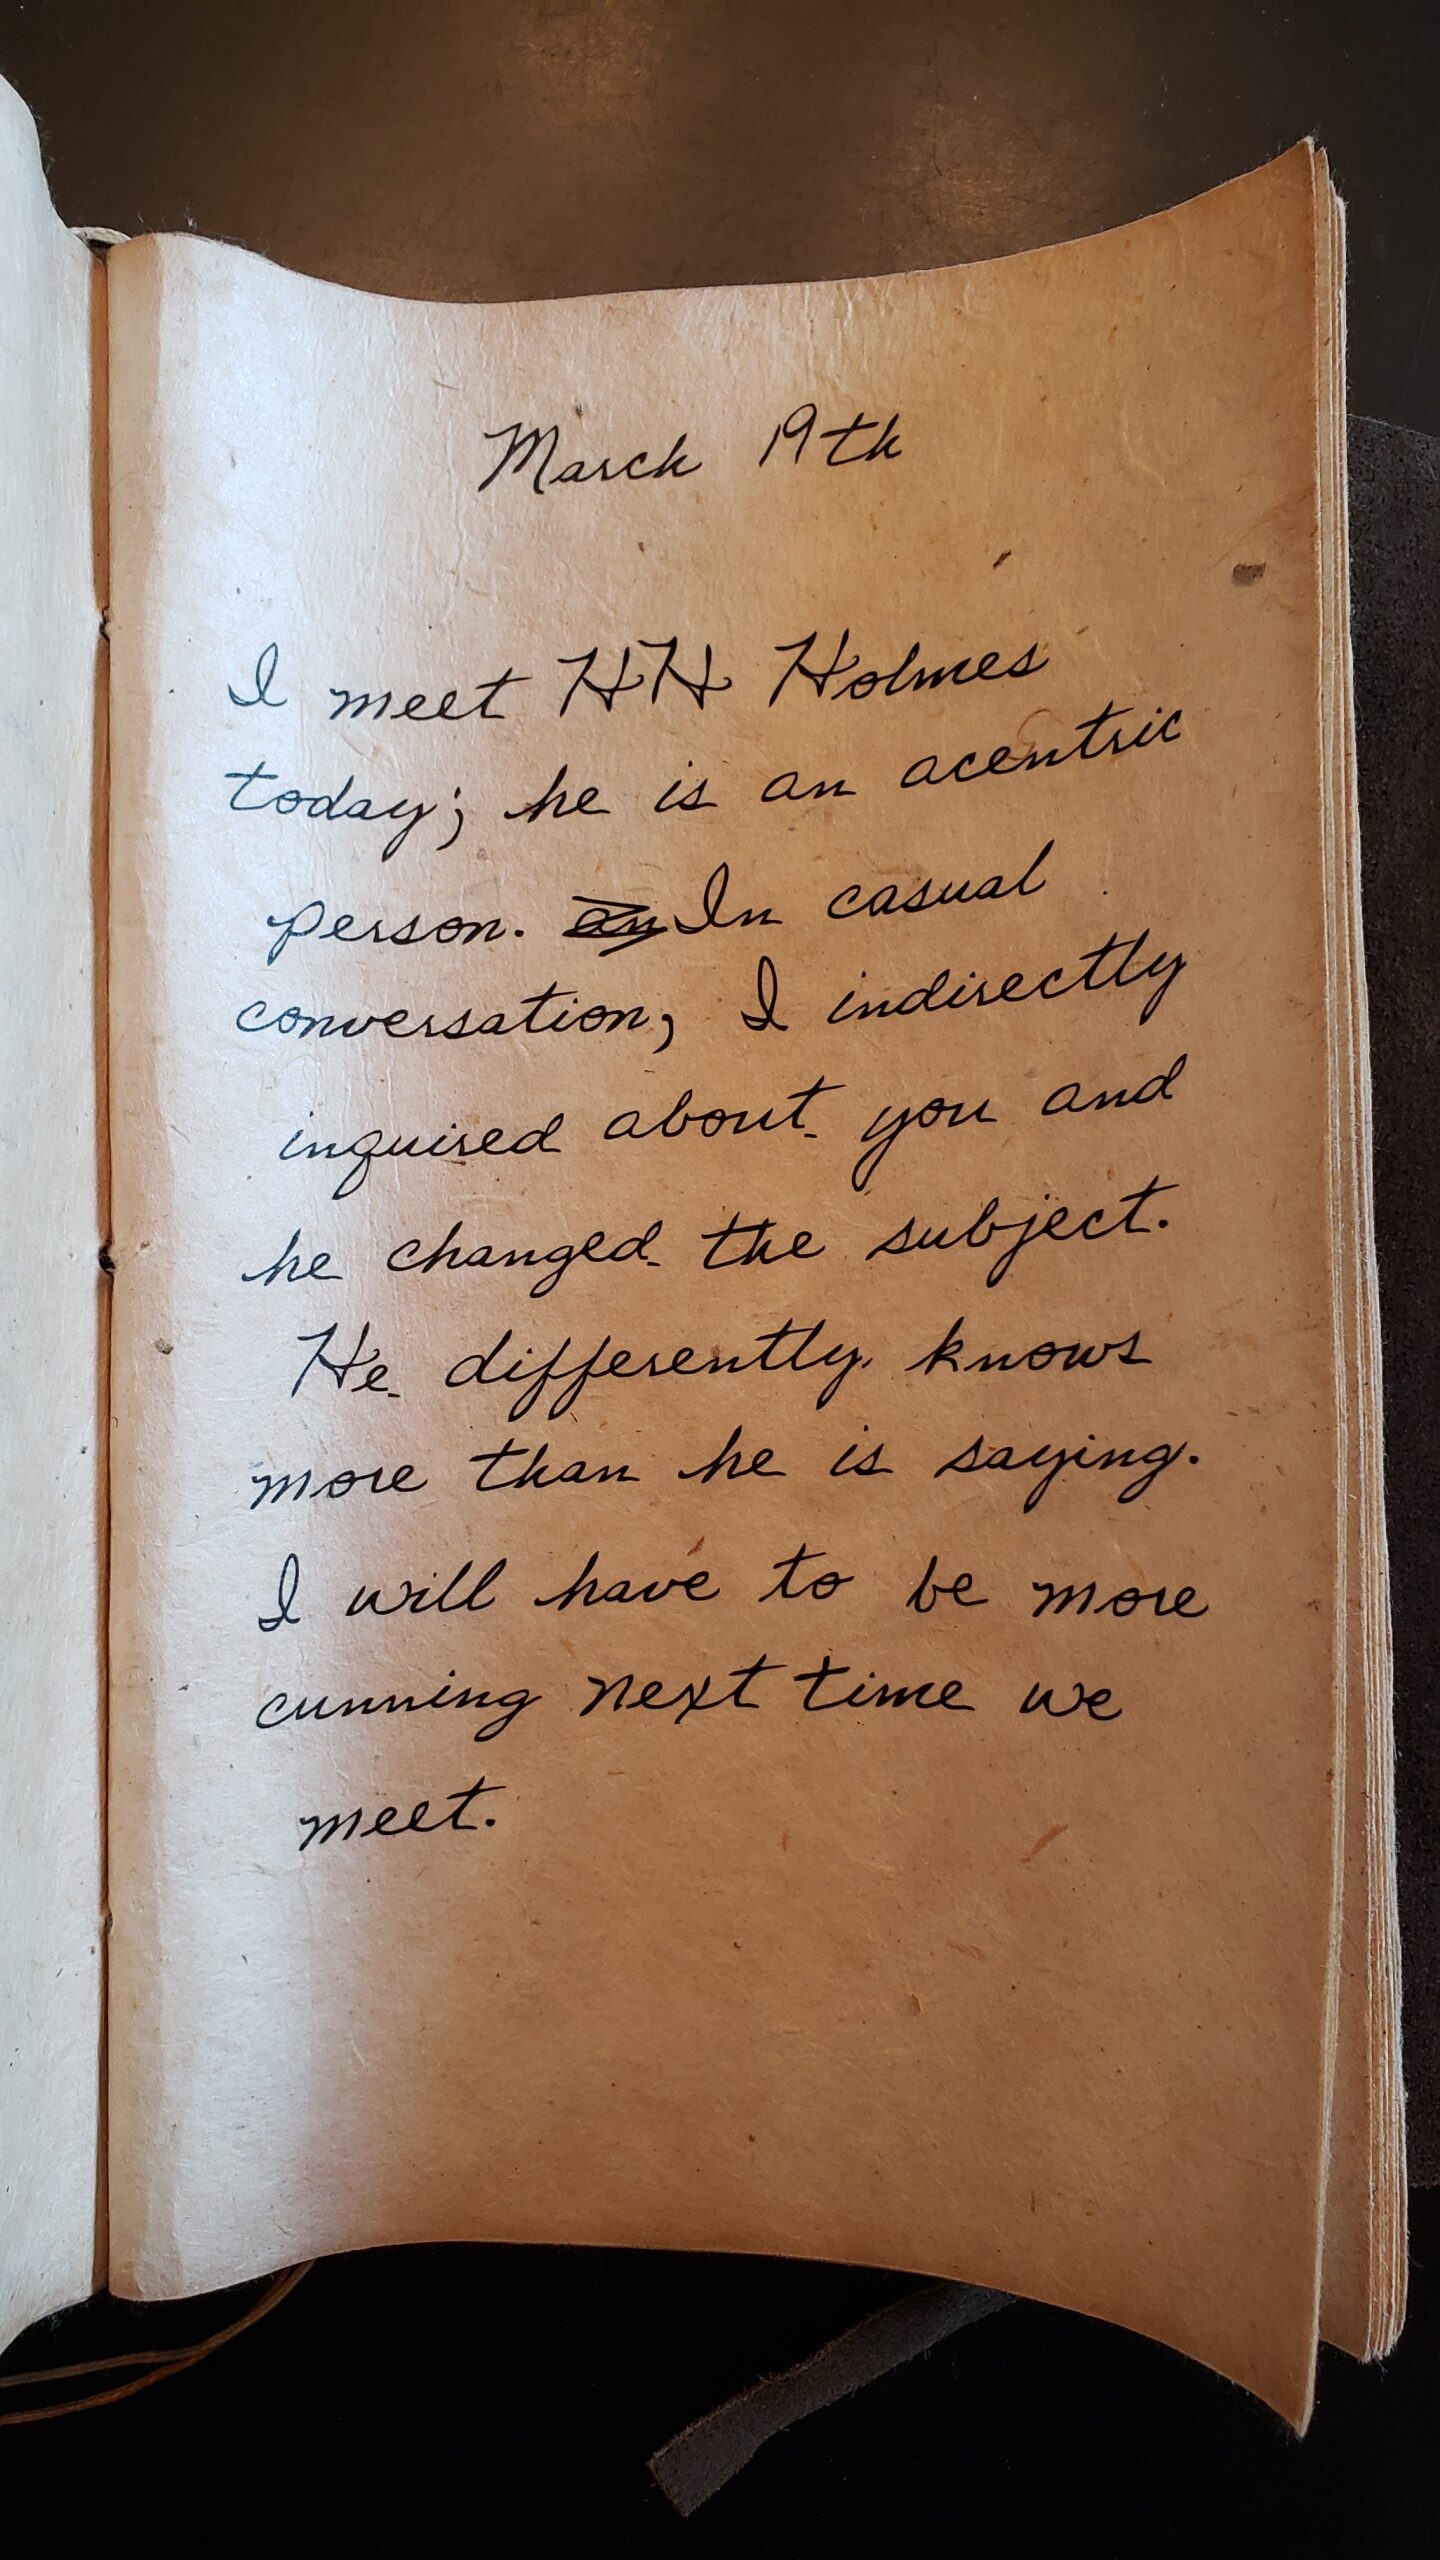 March 19th
I meet HH Holmes
today; he is an acentric
person. In casual
conversation, I indirectly
inquired about you and
he changed the subject.
He differently knows
more than he is saying.
I will have to be more
cunning next time we
meet.